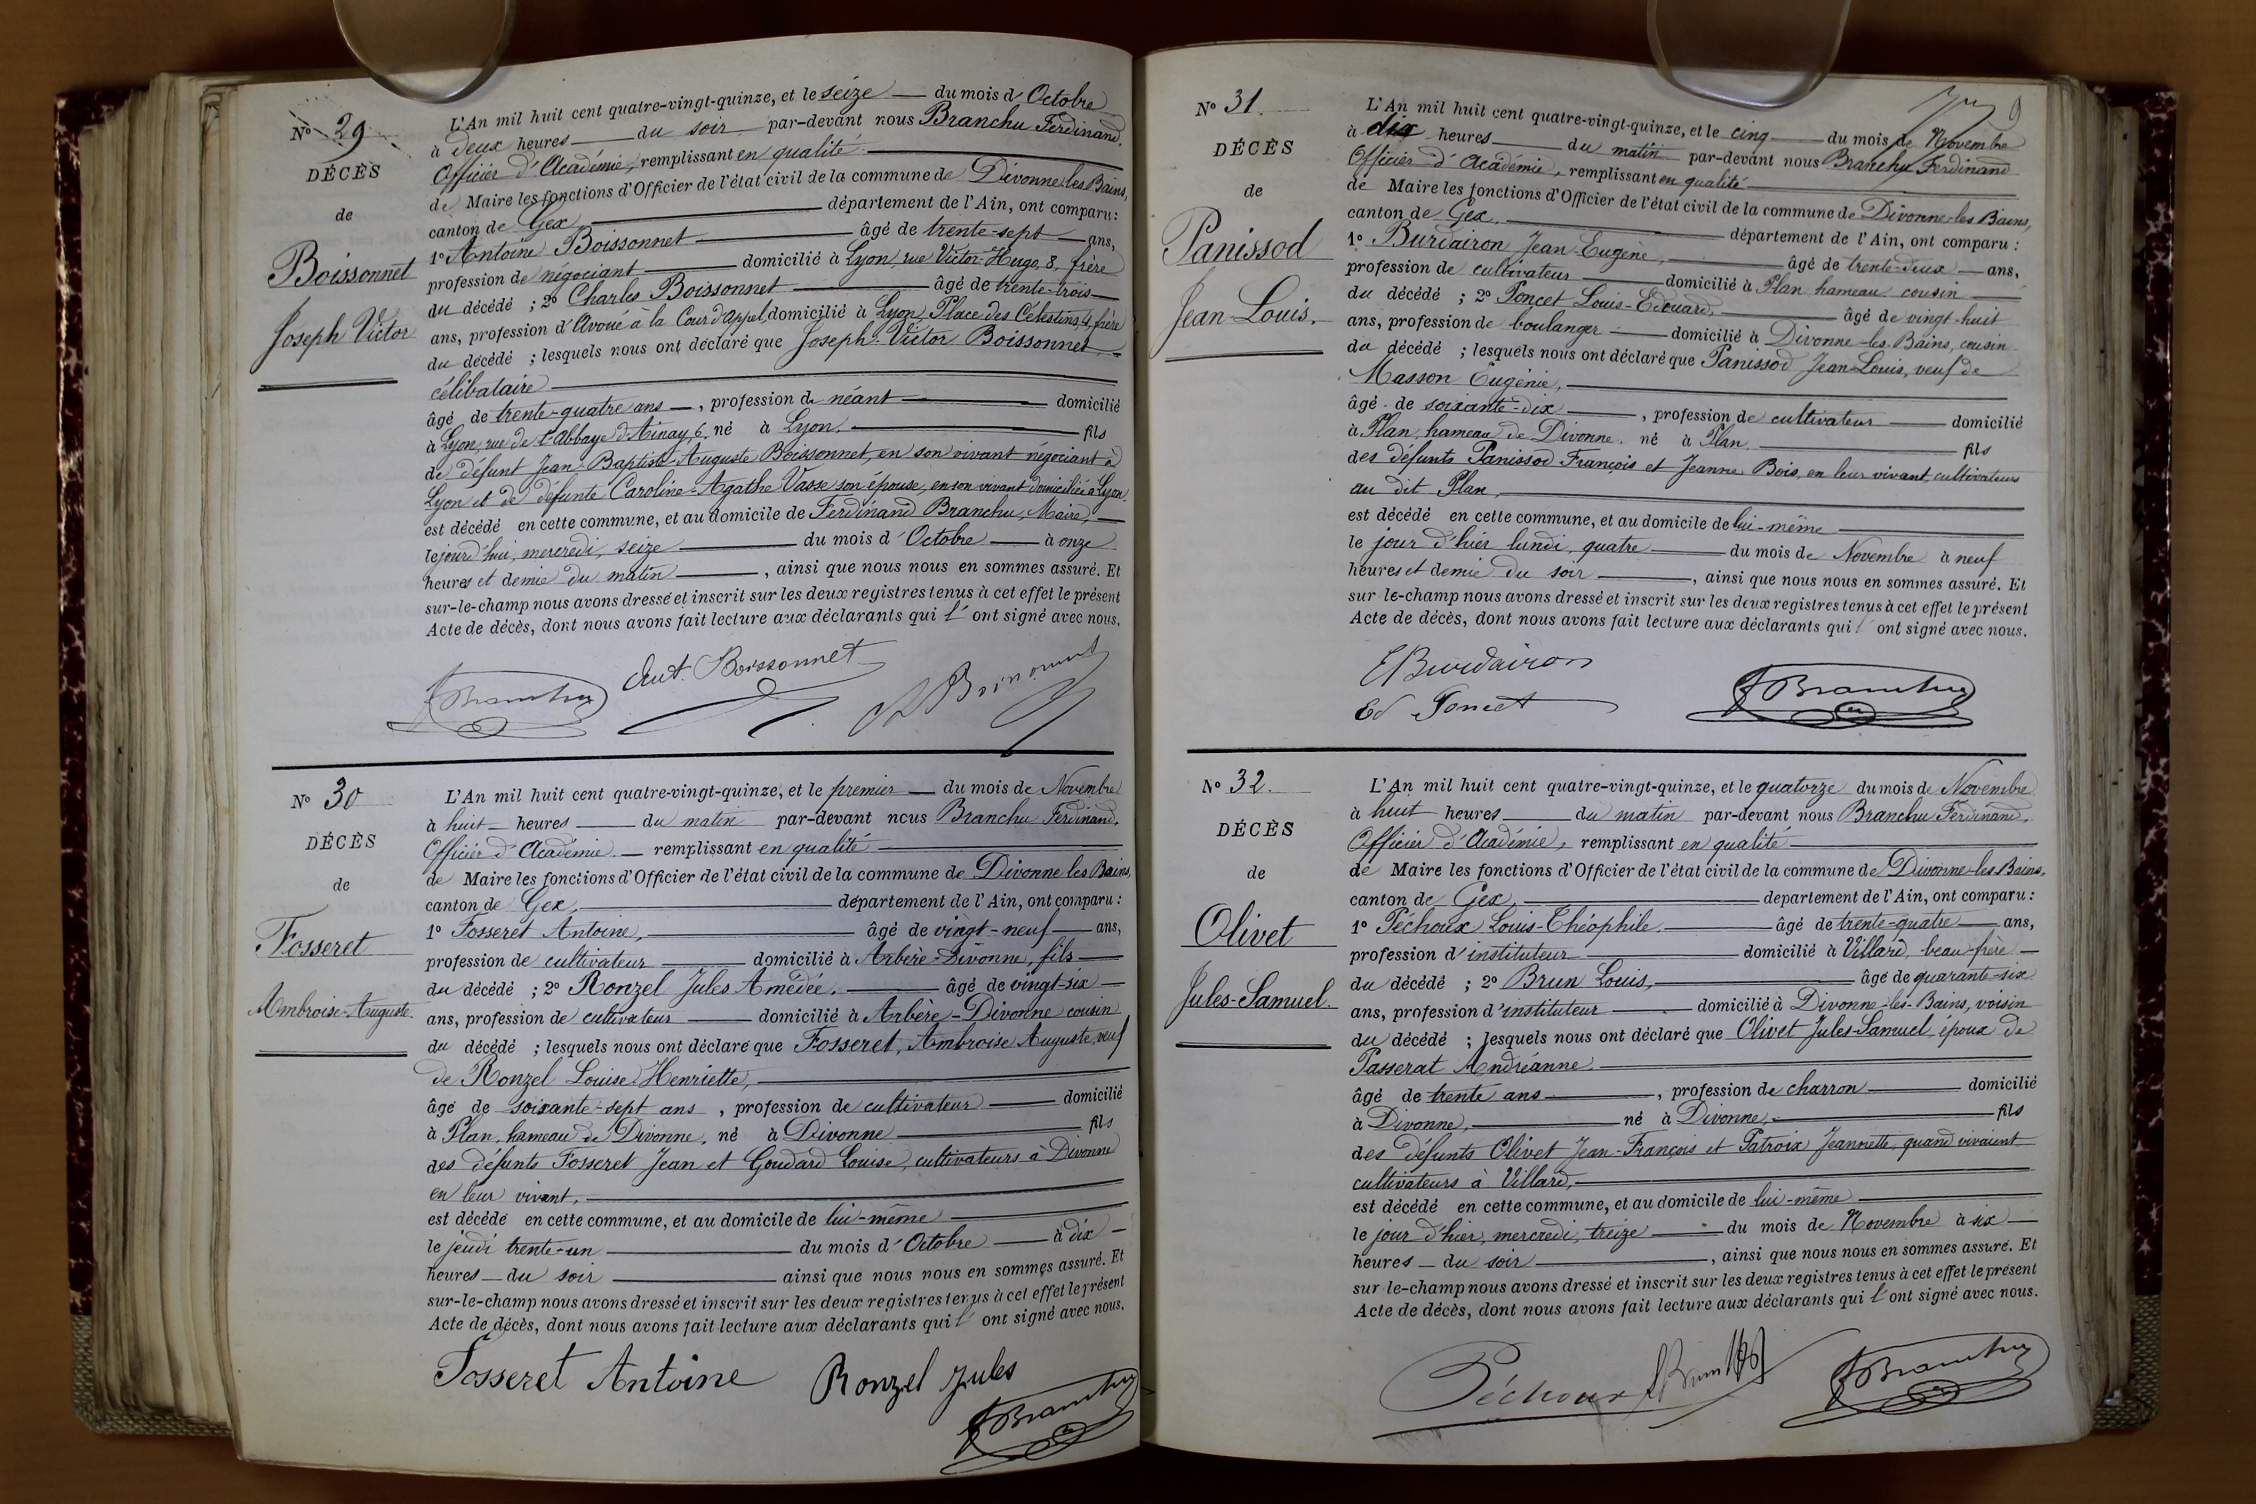 N° 29
DÉCÈS
de
Boissonnet
Joseph Victor
L'An mil huit cent quatre-vingt-quinze, et le seize du mois d'Octobre
à deux heures du soir par-devant nous Branchu Ferdinand,
Officier d'Académie, remplissant en qualité
de Maire les fonctions d'Officier de l'état civil de la commune de Divonne les Bains,
canton de Gex département de l'Ain, ont comparu :
1° Antoine Boissonnet âgé de trente-sept ans,
profession de négociant domicilié à Lyon, rue Victor-Hugo, 8, frère
du décédé ; 2° Charles Boissonnet âgé de trente-trois
ans, profession d'Avoué à la Cour d'appel, domicilié à Lyon, Place des Célestins, 4, frère
du décédé ; lesquels nous ont déclaré que Joseph-Victor Boissonnet,
célibataire
âgé de trente-quatre ans, profession de néant domicilié
à Lyon, rue de l'Abbaye d'Ainay, 6, né à Lyon. fils
de défunt Jean-Baptiste-Auguste Boissonnet, en son vivant négociant à
Lyon et de défunte Caroline-Agathe Vasse son épouse, en son vivant domiciliée à Lyon.
est décédé en cette commune, et au domicile de Ferdinand Branchu, Maire,
le jourd'hui, mercredi, seize du mois d'Octobre à onze
heures et demie du matin, ainsi que nous nous en sommes assuré. Et
sur-le-champ nous avons dressé et inscrit sur les deux registres tenus à cet effet le présent
Acte de décès, dont nous avons fait lecture aux déclarants qui l'ont signé avec nous.
FBranchu Ant. Boissonnet Ch Boissonnet
N° 30
DÉCÈS
de
Fosseret
Ambroise-Auguste.
L'An mil huit cent quatre-vingt-quinze, et le premier du mois de Novembre
à huit heures du matin par-devant nous Branchu Ferdinand,
Officier d'Académie. remplissant en qualité
de Maire les fonctions d'Officier de l'état civil de la commune de Divonne les Bains,
canton de Gex, département de l'Ain, ont comparu :
1° Fosseret Antoine, âgé de vingt-neuf ans,
profession de cultivateur domicilié à Arbère-Divonne, fils
du décédé ; 2° Ronzel Jules Amédée. âgé de vingt-six
ans, profession de cultivateur domicilié à Arbère-Divonne cousin
du décédé ; lesquels nous ont déclaré que Fosseret, Ambroise Auguste, veuf
de Ronzel Louise Henriette,
âgé de soixante-sept ans, profession de cultivateur domicilié
à Plan, hameau de Divonne, né à Divonne fils
des défunts Fosseret Jean et Goudard Louise, cultivateurs à Divonne
en leur vivant,
est décédé en cette commune, et au domicile de lui-même
le jeudi trente-un du mois d'Octobre à dix
heures du soir ainsi que nous nous en sommes assuré. Et
sur-le-champ nous avons dressé et inscrit sur les deux registres tenus à cet effet le présent
Acte de décès, dont nous avons fait lecture aux déclarants qui l'ont signé avec nous.
Fosseret Antoine Ronzel Jules
FBranchu
9
N° 31.
DÉCÈS
de
Panissod
Jean-Louis.
L'An mil huit cent quatre-vingt-quinze, et le cinq du mois de Novembre
à dix heures du matin par-devant nous Branchu Ferdinand
Officier d'Académie, remplissant en qualité
de Maire les fonctions d'Officier de l'état civil de la commune de Divonne-les Bains,
canton de Gex. département de l'Ain, ont comparu :
1° Burdairon Jean-Eugène, âgé de trente-deux ans,
profession de cultivateur domicilié à Plan hameau cousin
du décédé ; 2° Poncet Louis-Edouard, âgé de vingt-huit
ans, profession de boulanger domicilié à Divonne-les-Bains, cousin
du décédé ; lesquels nous ont déclaré que Panissod Jean-Louis, veuf de
Masson Eugénie,
âgé de soixante-dix, profession de cultivateur domicilié
à Plan, hameau de Divonne. né à Plan fils
des défunts Panissod François et Jeanne Bois, en leur vivant, cultivateurs
au dit Plan,
est décédé en cette commune, et au domicile de lui-même
le jour d'hier lundi, quatre du mois de Novembre à neuf
heures et demie du soir, ainsi que nous nous en sommes assuré. Et
sur-le-champ nous avons dressé et inscrit sur les deux registres tenus à cet effet le présent
Acte de décès, dont nous avons fait lecture aux déclarants qui l'ont signé avec nous.
EBurdairon
Ed Poncet FBranchu
N° 32.
DÉCÈS
de
Olivet
Jules-Samuel.
L'An mil huit cent quatre-vingt-quinze, et le quatorze du mois de Novembre
à huit heures du matin par-devant nous Branchu Ferdinand,
Officier d'Académie, remplissant en qualité
de Maire les fonctions d'Officier de l'état civil de la commune de Divonne-les-Bains,
canton de Gex, département de l'Ain, ont comparu :
1° Péchoux Louis-Théophile. âgé de trente-quatre ans,
profession d'instituteur domicilié à Villard, beau-frère
du décédé ; 2° Brun Louis, âgé de quarante-six
ans, profession d'instituteur domicilié à Divonne-les-Bains, voisin
du décédé ; lesquels nous ont déclaré que Olivet Jules-Samuel, époux de
Passerat Andréanne.
âgé de trente ans, profession de charron domicilié
à Divonne, né à Divonne, fils
des défunts Olivet Jean-François et Patroix Jeannette, quand vivaient
cultivateurs à Villard,
est décédé en cette commune, et au domicile de lui-même
le jour d'hier, mercredi, treize du mois de Novembre à six
heures du soir, ainsi que nous nous en sommes assuré. Et
sur-le-champ nous avons dressé et inscrit sur les deux registres tenus à cet effet le présent
Acte de décès, dont nous avons fait lecture aux déclarants qui l'ont signé avec nous.
Péchoux LBrun FBranchu